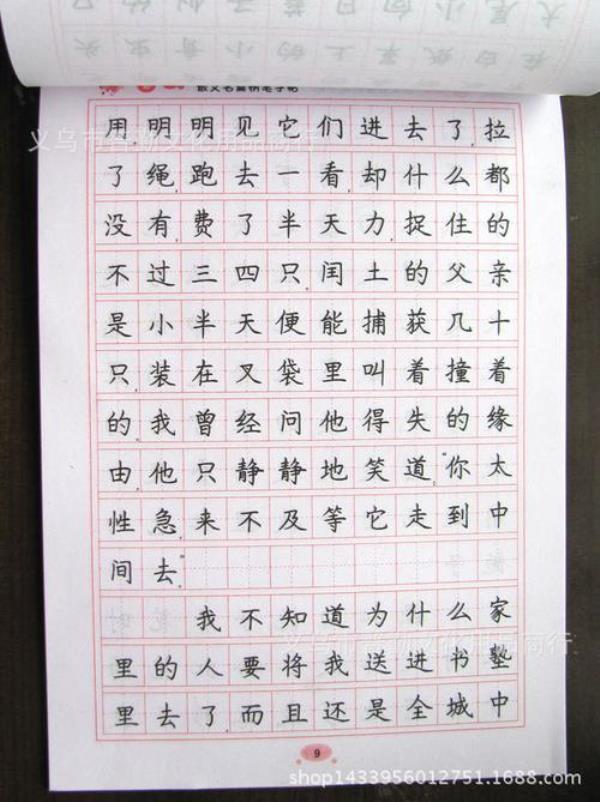 散文名篇钢笔字帖
用,明明见它们进去了,拉
了绳,跑去一看,却什么都
没有,费了半天力,捉住的
不过三四只。闰土的父亲
是小半天便能捕获几十
只,装在叉袋里叫着撞着
的。我曾经问他得失的缘
由,他只静静地笑道:“你太
性急,来不及等它走到中
间去。”
我不知道为什么家
里的人要将我送进书塾
里去了,而且还是全城中
9
shop1433956012751.1688.com